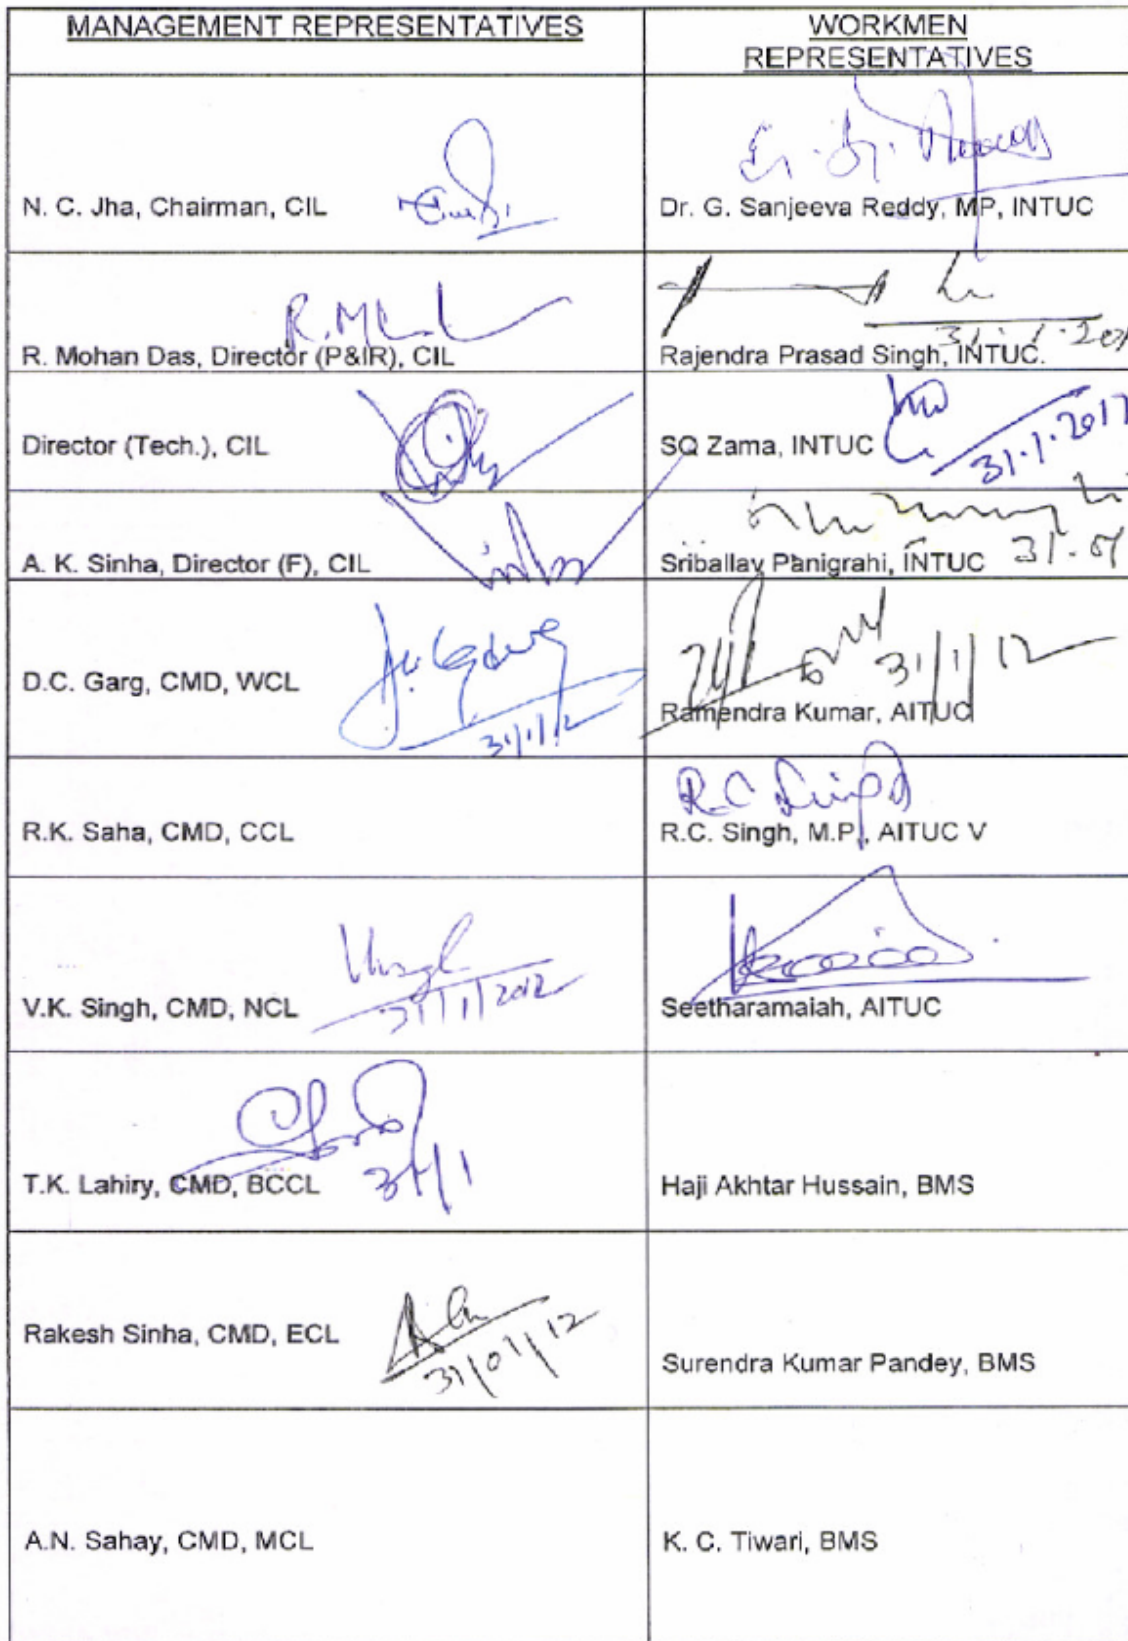 MANAGEMENT REPRESENTATIVES
WORKMEN
REPRESENTATIVES
N. C. Jha, Chairman, CIL
Dr. G. Sanjeeva Reddy, MP, INTUC
R. Mohan Das, Director (P&IR), CIL
Rajendra Prasad Singh, INTUC.
Director (Tech.), CIL
SQ Zama, INTUC
31.1.2012
A. K. Sinha, Director (F), CIL
Sriballav Panigrahi, INTUC
D.C. Garg, CMD, WCL
31/1/12
Ramendra Kumar, AITUC
31/1/12
R.K. Saha, CMD, CCL
R.C Singh
R.C. Singh, M.P., AITUC V
V.K. Singh, CMD, NCL
31/1/2012
Seetharamaiah, AITUC
T.K. Lahiry, CMD, BCCL
31/1
Haji Akhtar Hussain, BMS
Rakesh Sinha, CMD, ECL
31/01/12
Surendra Kumar Pandey, BMS
A.N. Sahay, CMD, MCL
K. C. Tiwari, BMS